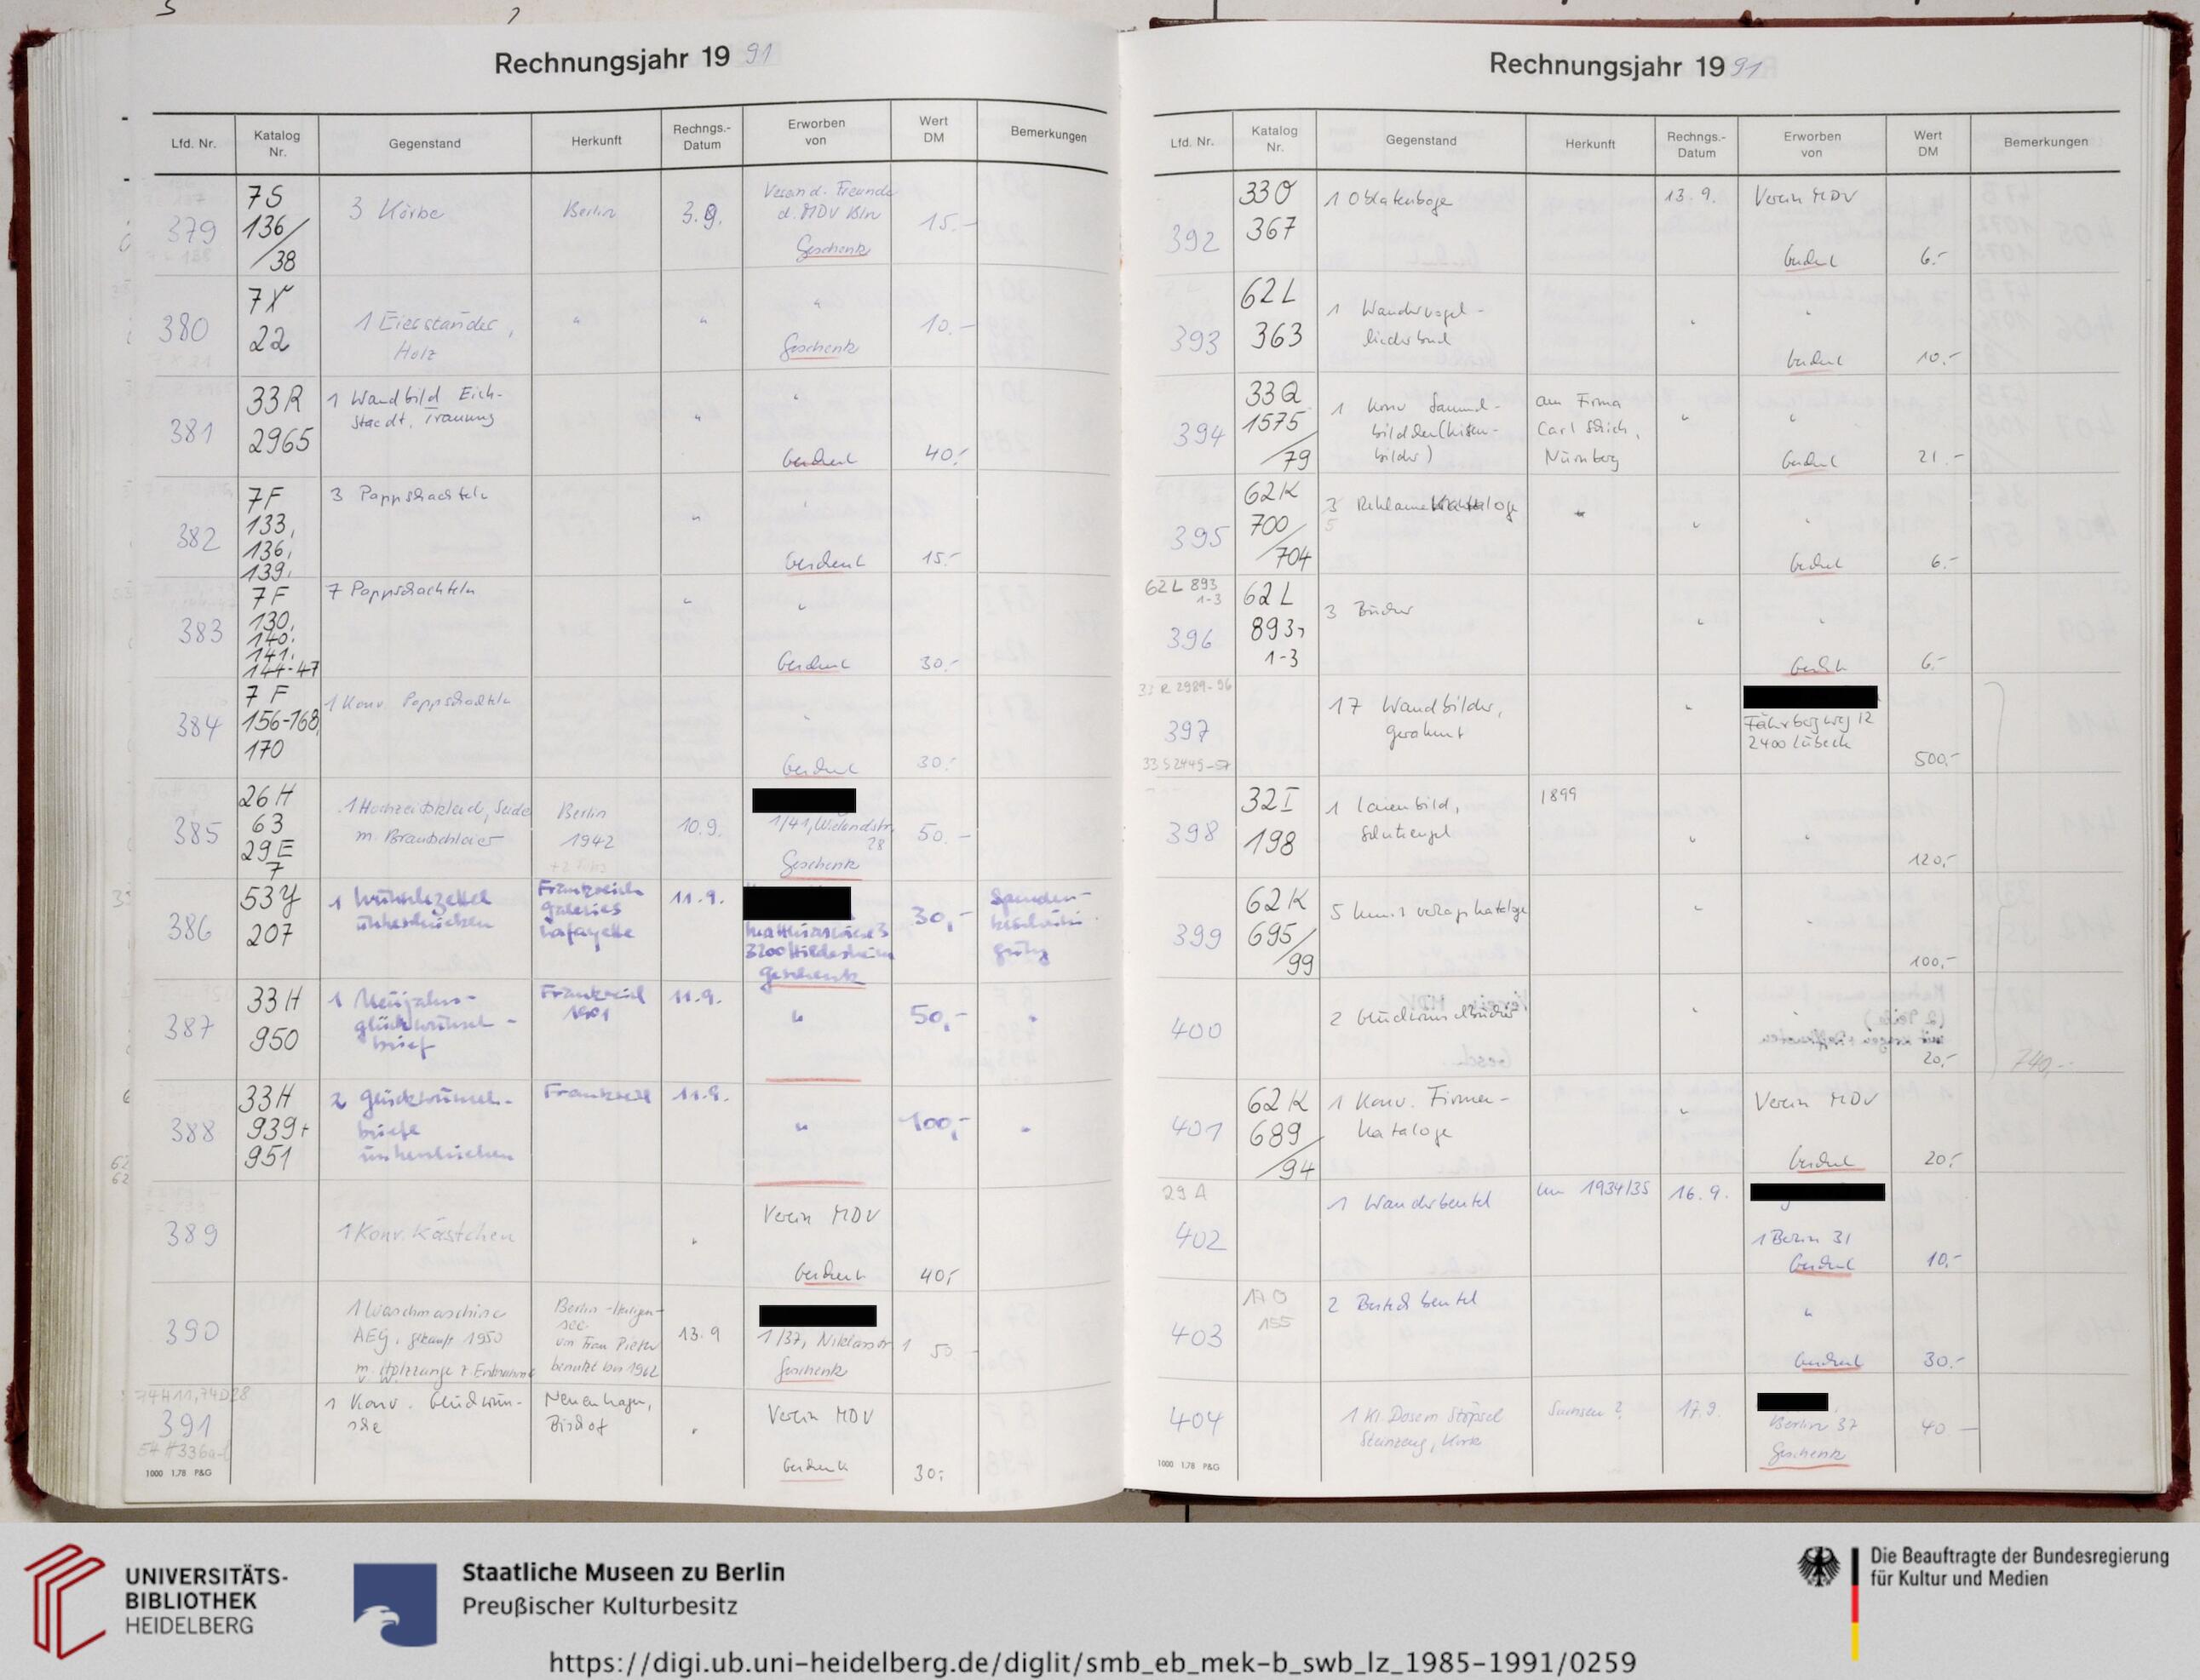 Rechnungsjahr 19 91
Lfd. Nr. Katalog Nr. Gegenstand Herkunft Rechngs.-Datum Erworben von Wert DM Bemerkungen
379 7S 136/38 3 Körbe Berlin 3.9. d. MDV Bln Geschenk 15.-
380 7X 22 1 Eierständer, Holz " " " Geschenk 10.-
381 33R 2965 1 Wandbild Eich-
staedt, Trauung " " Geschenk 40.-
382 7F 133, 136, 139, 3 Pappschachteln " " Geschenk 15.-
383 7F 130, 140, 141, 144-47 7 Pappschachteln " " Geschenk 30.-
384 7F 156-168, 170 1 Konv. Pappschachteln " Geschenk 30.-
385 26H 63 29E 7 1 Hochzeitskleid, Seide
m. Brautschleier Berlin 1942 10.9. 1/41, Wielandstr. 28 Geschenk 50.-
386 53Y 207 1 Frankreich Galeries Lafayette 11.9. 3200 Hildesheim Geschenk 30,- Spenden-
387 33H 950 1 Neujahrs-
glückwunsch-
brief Frankreich 1901 11.9. " 50,- "
388 33H 939+ 951 2 Glückwunsch-
briefe Frankreich 11.9. " 100,- "
389 1 Konv. Kästchen " Verein MDV Geschenk 40,-
390 1 Waschmaschine
AEG, gekauft 1950
benutzt bis 1962 13.9 1/37, Niklasstr. Geschenk 50
74H11, 74D28
391 1 Konv. Glückwün-
sche Neuenhagen, Bischof " Verein MDV Geschenk 30,-
1000 1.78 P&G
Rechnungsjahr 1991
Lfd. Nr. Katalog Nr. Gegenstand Herkunft Rechngs.-Datum Erworben von Wert DM Bemerkungen
392 33O 367 1 Oblatenboge 13.9. Verein MDV Geschenk 6.-
393 62L 363 1 Wandervogel-
liederbuch " " Geschenk 10.-
394 33Q 1575/79 1 Konv Sammel-
bilder Firma Carl Nürnberg " " Geschenk 21.-
395 62K 700/704 5 Reklame kataloge " " Geschenk 6.-
62L 893 1-3
396 62L 893, 1-3 3 Bücher " " Geschenk 6.-
33R 2989-96
397 17 Wandbilder,
gerahmt " Fährbergweg 12 2400 Lübeck 500.-
33S2449-57
398 32I 198 1
Schutzengel 1899 " " 120,-
399 62K 695/99 5 " " 100,-
400 2 " 20,- 740,-
401 62K 689/94 1 Konv. Firmen-
kataloge " Verein MDV Geschenk 20,-
29A
402 1 Wanderbeutel um 1934/35 16.9. 1 Berlin 31 Geschenk 10,-
403 155 2 Besteckbeutel " Geschenk 30.-
404 1 Kl. Dose m. Stöpsel
Steinzeug, Kork Sachsen? 17.9. Berlin 37 Geschenk 40.-
1000 1.78 P&G
UNIVERSITÄTS-
BIBLIOTHEK
HEIDELBERG
Staatliche Museen zu Berlin
Preußischer Kulturbesitz
Die Beauftragte der Bundesregierung
für Kultur und Medien
https://digi.ub.uni-heidelberg.de/diglit/smb_eb_mek-b_swb_lz_1985-1991/0259